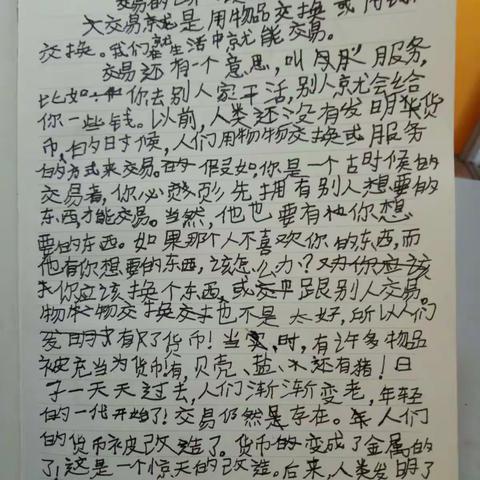 交易的
交易就是用物品交换或用钱
交换。我们在生活中就能交易。
交易还有一个意思,叫服务,
比如:你去别人家干活,别人就会给
你一些钱。以前,人类还没有发明货
币的时候,人们用物物交换或服务
的方式来交易。假如,你是一个古时候的
交易者,你必须先拥有别人想要的
东西,才能交易。当然,他也要有你想
要的东西。如果那个人不喜欢你的东西,而
他有你想要的东西,该怎么办?
你应该换个东西,或跟别人交易。
物物交换也不是太好,所以人们
发明了货币!当时,有许多物品
被充当为货币,有贝壳、盐、还有猪!日
子一天天过去,人们渐渐变老,年轻
的一代开始了!交易仍然是存在。人们
的货币被改造了。货币变成了金属的
了!这是一个惊天的改造。后来,人类发明了